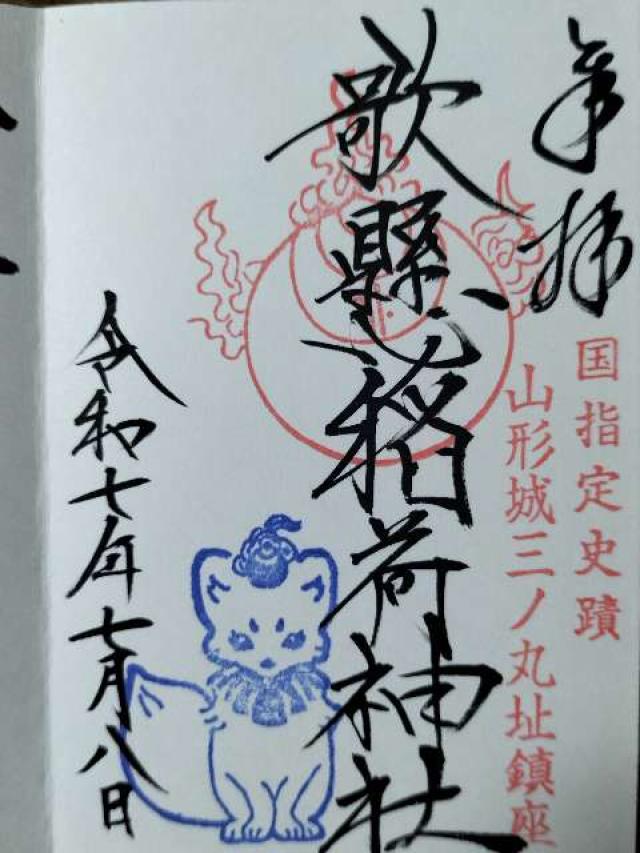 奉拝
国指定史蹟
山形城三ノ丸址鎮座
歌懸稲荷神社
令和七年七月八日